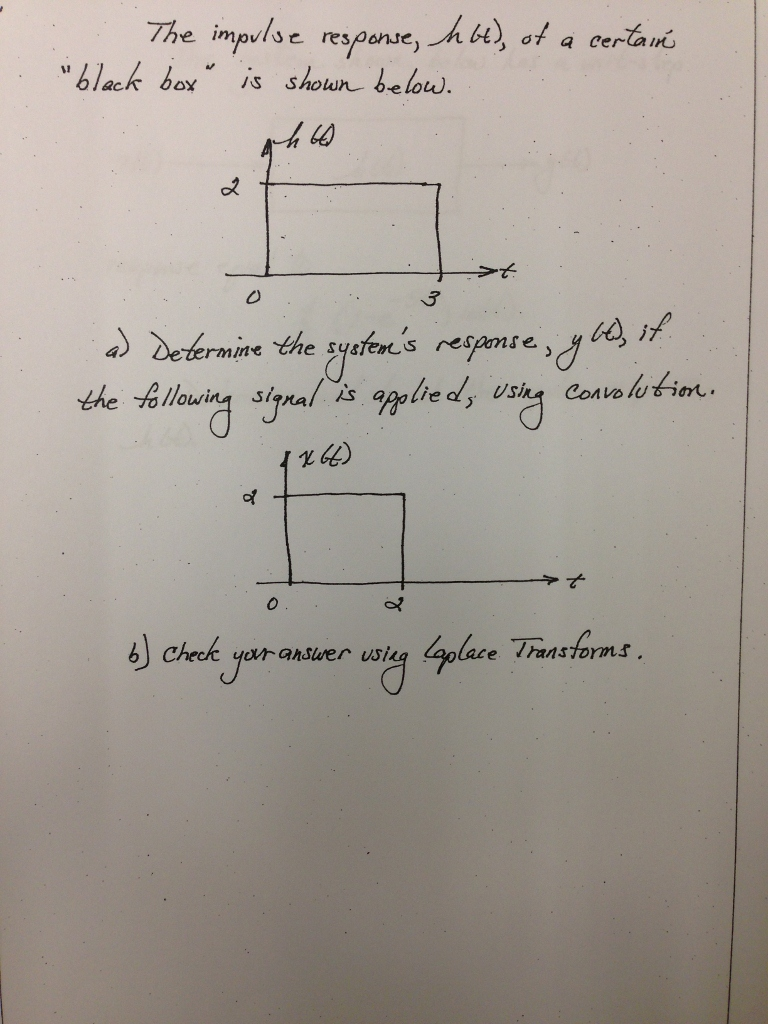 The impulse response, h(t), of a certain
"black box" is shown below.
h(t)
2
t
0 3
a) Determine the system's response, y(t), if
the following signal is applied, using convolution.
x(t)
2
t
0 2
b) Check your answer using Laplace Transforms.